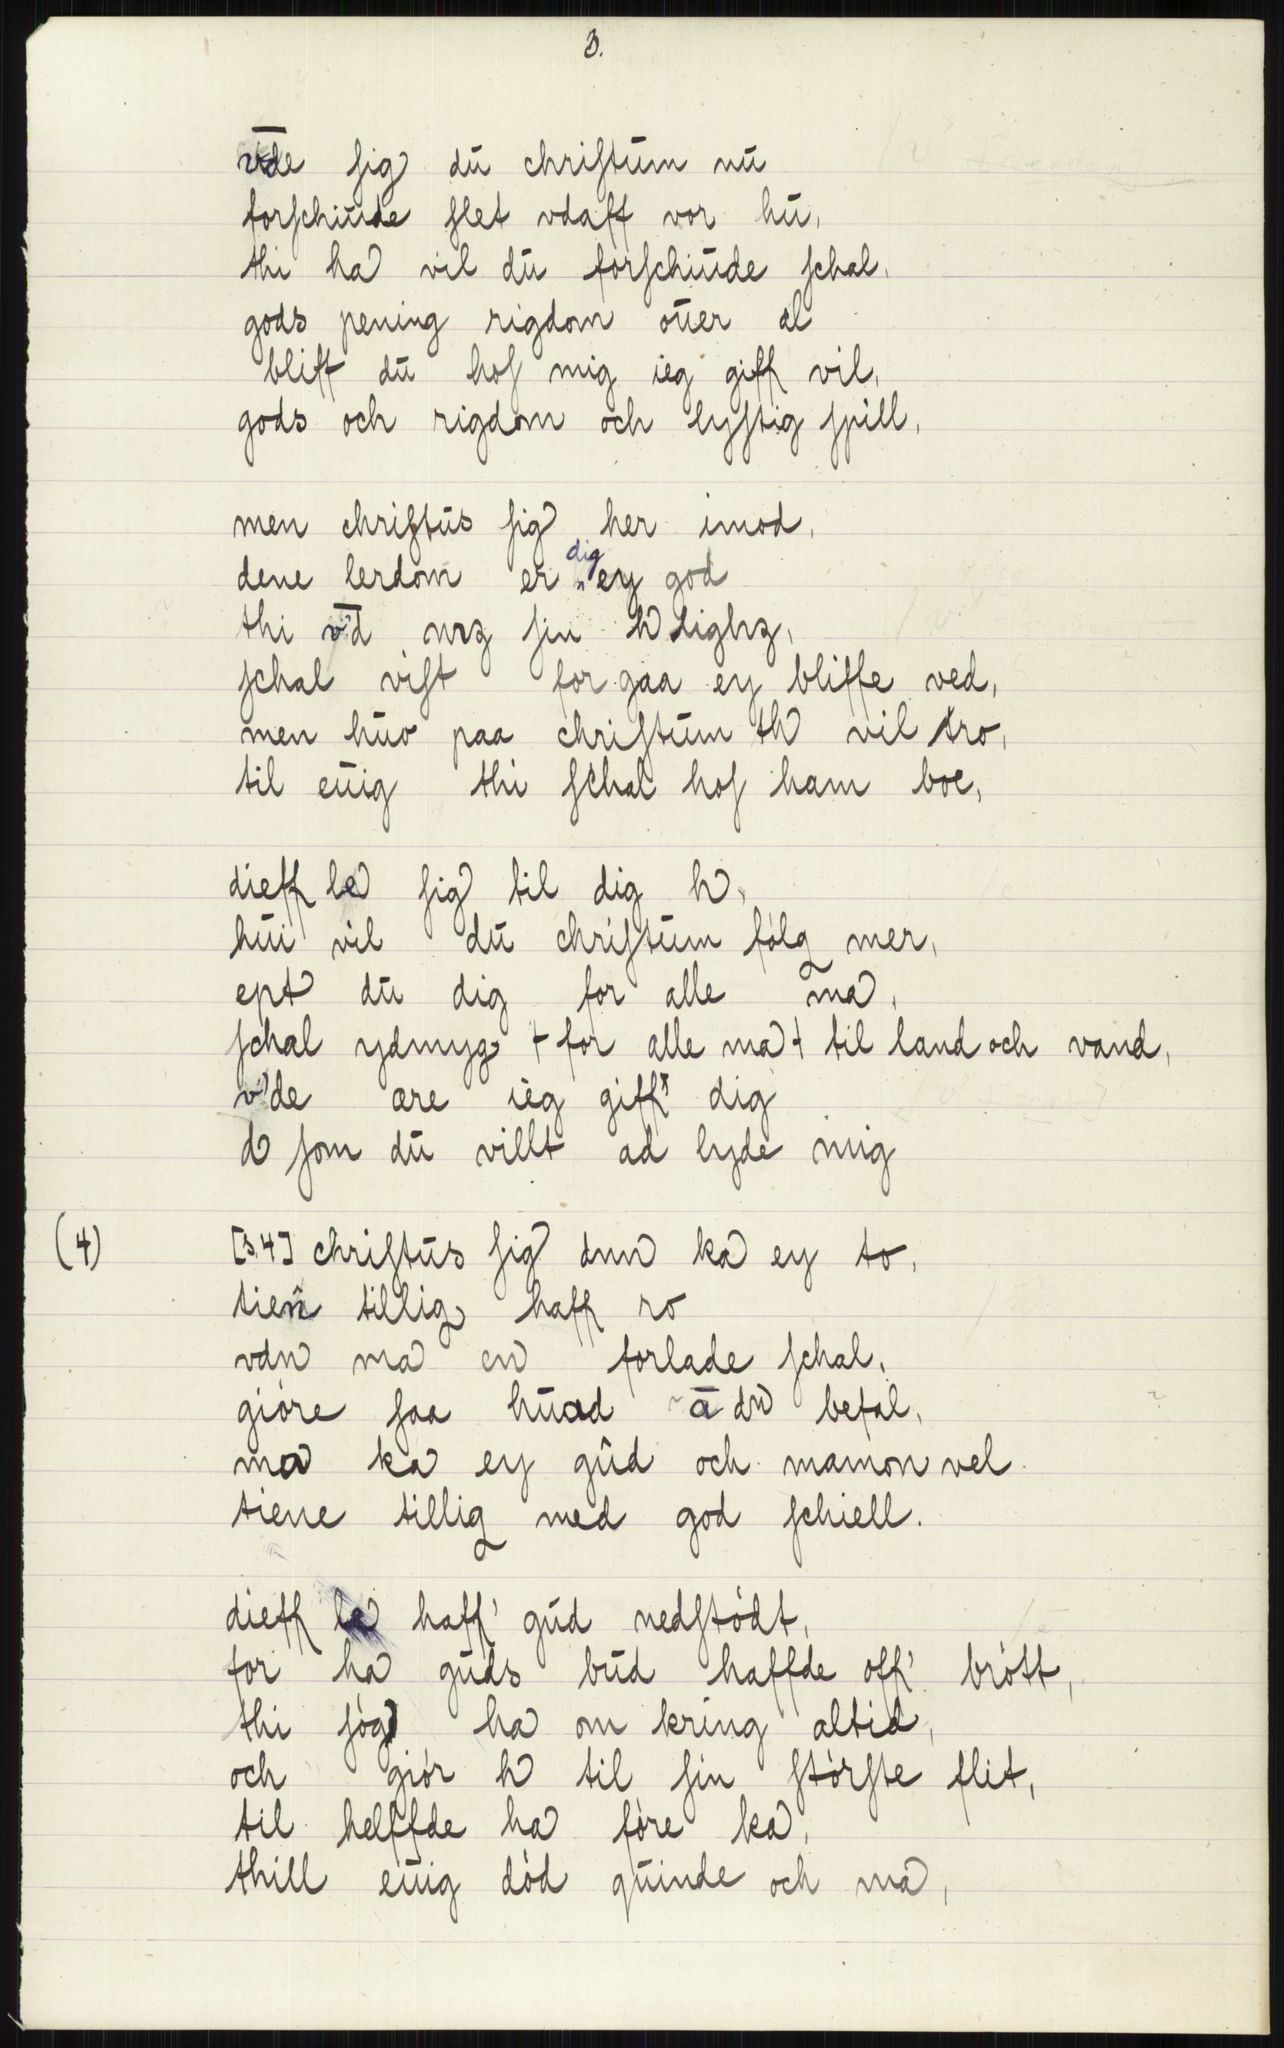 3.
v̄de ſig du chriſtum nu
forſchiude ſlet vdaff vor hu,
thi ha vil du forſchiude ſchal,
gods pening rigdom ouer al
blift du hoſ mig ieg giff vil,
gods och rigdom och lyſtig ſpill,
men chriſtus ſig her imod,
dene lerdom er dig ey god
thi v̄d ſin h lighz,
ſchal viſt for gaa ey bliffe ved,
men huo paa chriſtum th vil tro,
til euig thi ſchal hoſ ham boe,
dieff le ſig til dig h,
hui vil du chriſtum fölg mer,
ept du dig for alle ma,
ſchal ydmyg + for alle ma + til land och vand,
v de ære ieg giff' dig
d ſom du villt ad lyde mig
(4) [3.4] chriſtus ſig ka ey to,
tien tillig haff ro
vdn ma en forlade ſchal,
gióre ſaa huad ā dn befal,
ma ka ey gud och mamon vel
tiene tillig med god ſchiell.
dieff le haff' gud nedſtódt,
for ha guds bud haffde off' brótt,
thi ſóg ha om kring altid,
och giór h til ſin ſtórſte flit,
til helffde ha fóre ka,
thill euig dód quinde och ma,